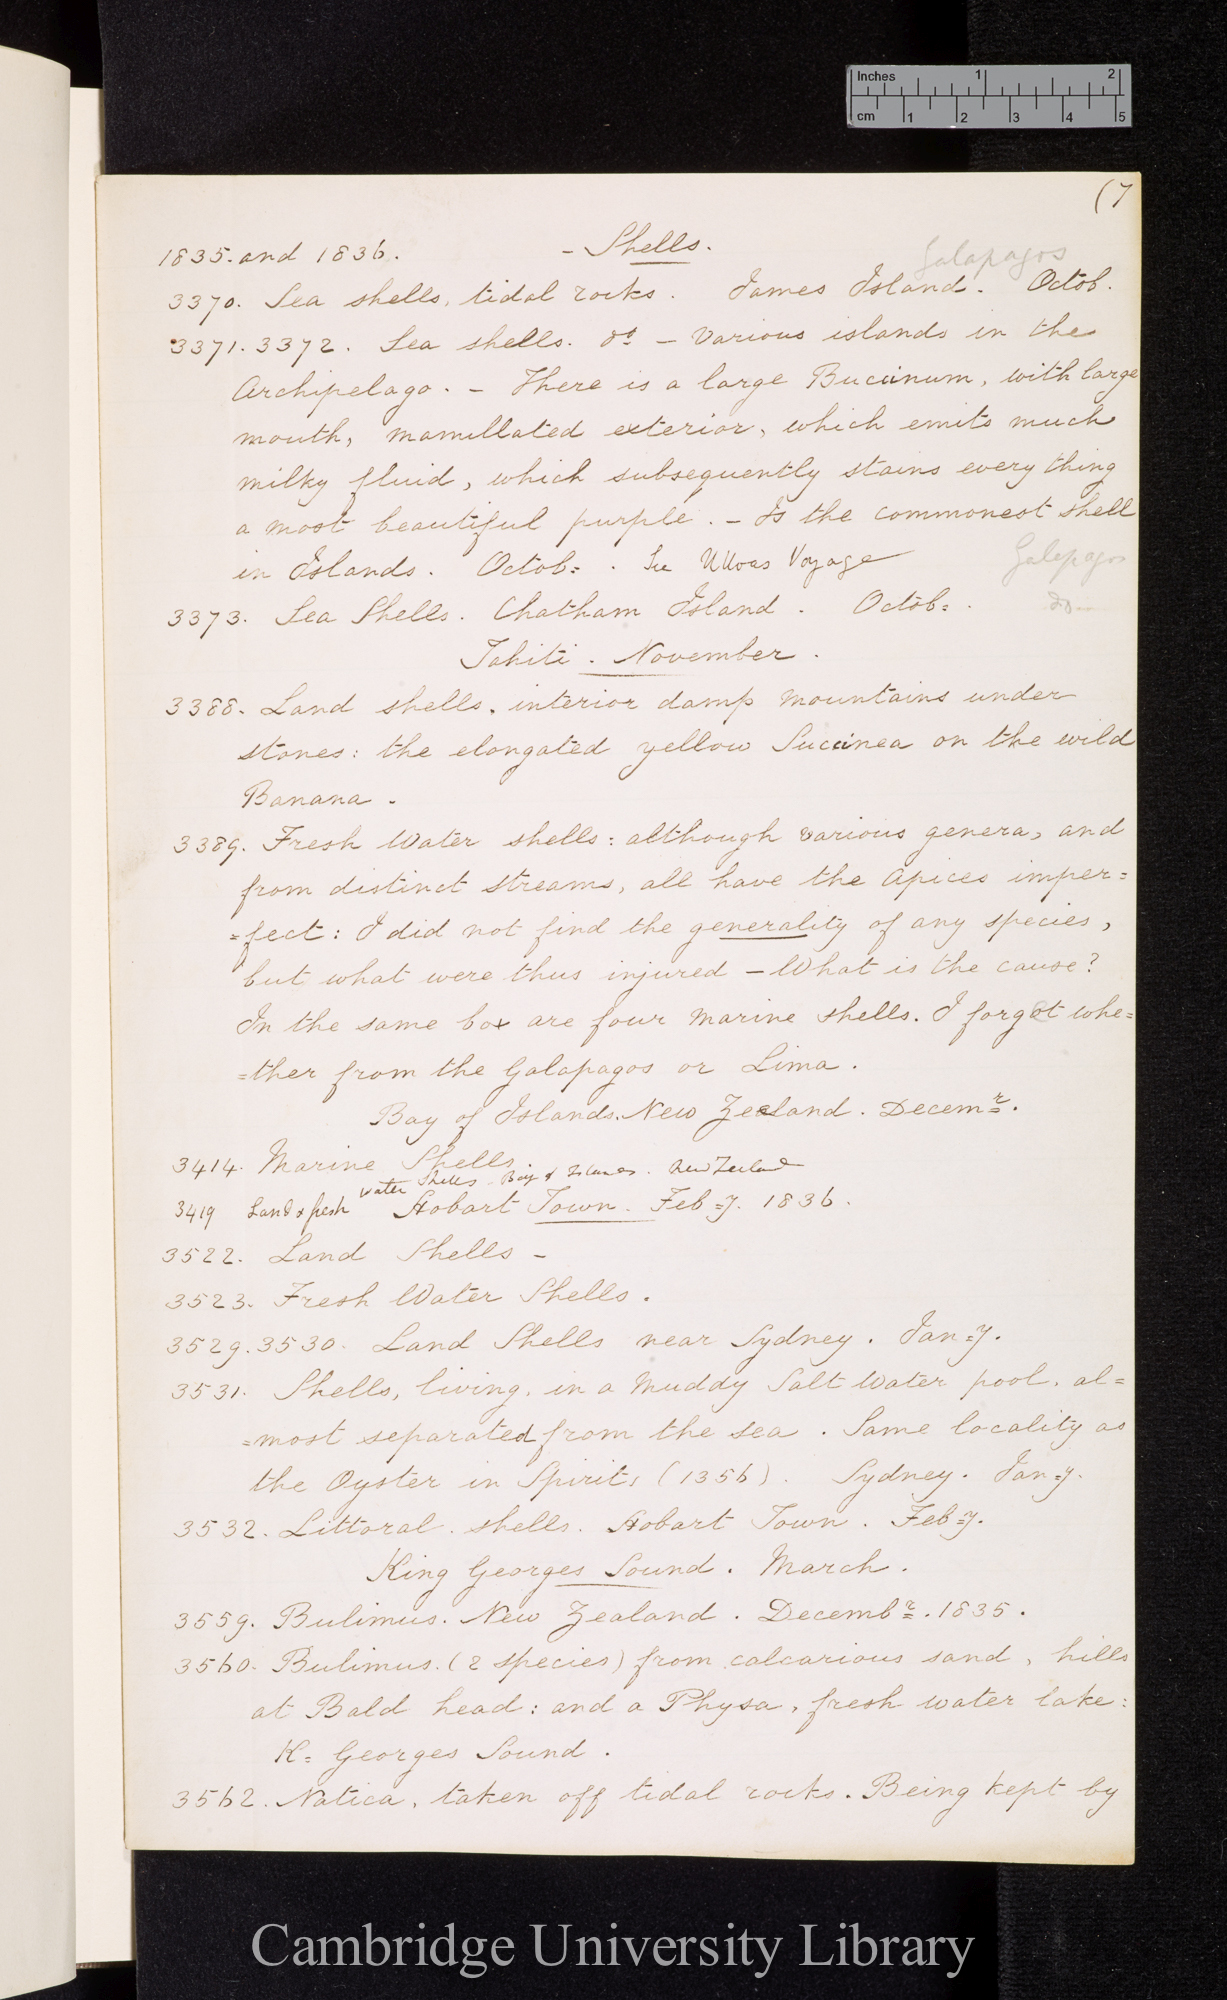 Inches 1 2
cm 1 2 3 4 5
(7
1835. and 1836. - Shells.
Galapagos
3370. Sea shells, tidal rocks. James Island. Octob.
3371. 3372. Sea shells. do - Various islands in the
Archipelago. - There is a large Buccinum, with large
mouth, mamillated exterior, which emits much
milky fluid, which subsequently stains every thing
a most beautiful purple. - Is the commonest shell
in Islands. Octob=. See Ulloas Voyage
Galapagos
3373. Sea Shells. Chatham Island. Octob=. do
Tahiti. November.
3388. Land shells, interior damp mountains under
stones: the elongated yellow Succinea on the wild
Banana.
3389. Fresh Water shells: although various genera, and
from distinct streams, all have the apices imper=
=fect: I did not find the generality of any species,
but what were thus injured - What is the cause?
In the same box are four marine shells. I forget whe=
=ther from the Galapagos or Lima.
Bay of Islands. New Zealand. Decemr.
3414. Marine Shells
water Shells Bay of Islands. New Zealand
3419 Land & fresh Hobart Town. Feb=y. 1836.
3522. Land Shells -
3523. Fresh Water Shells.
3529. 3530. Land Shells near Sydney. Jan=y.
3531. Shells, living, in a muddy Salt Water pool, al=
=most separated from the sea. Same locality as
the Oyster in Spirits (1356). Sydney. Jan=y.
3532. Littoral shells. Hobart Town. Feb=y.
King Georges Sound. March.
3559. Bulimus. New Zealand. Decembr. 1835.
3560. Bulimus. (2 species) from calcarious sand, hills
at Bald head: and a Physa, fresh water lake:
K= Georges Sound.
3562. Natica, taken off tidal rocks. Being kept by
Cambridge University Library